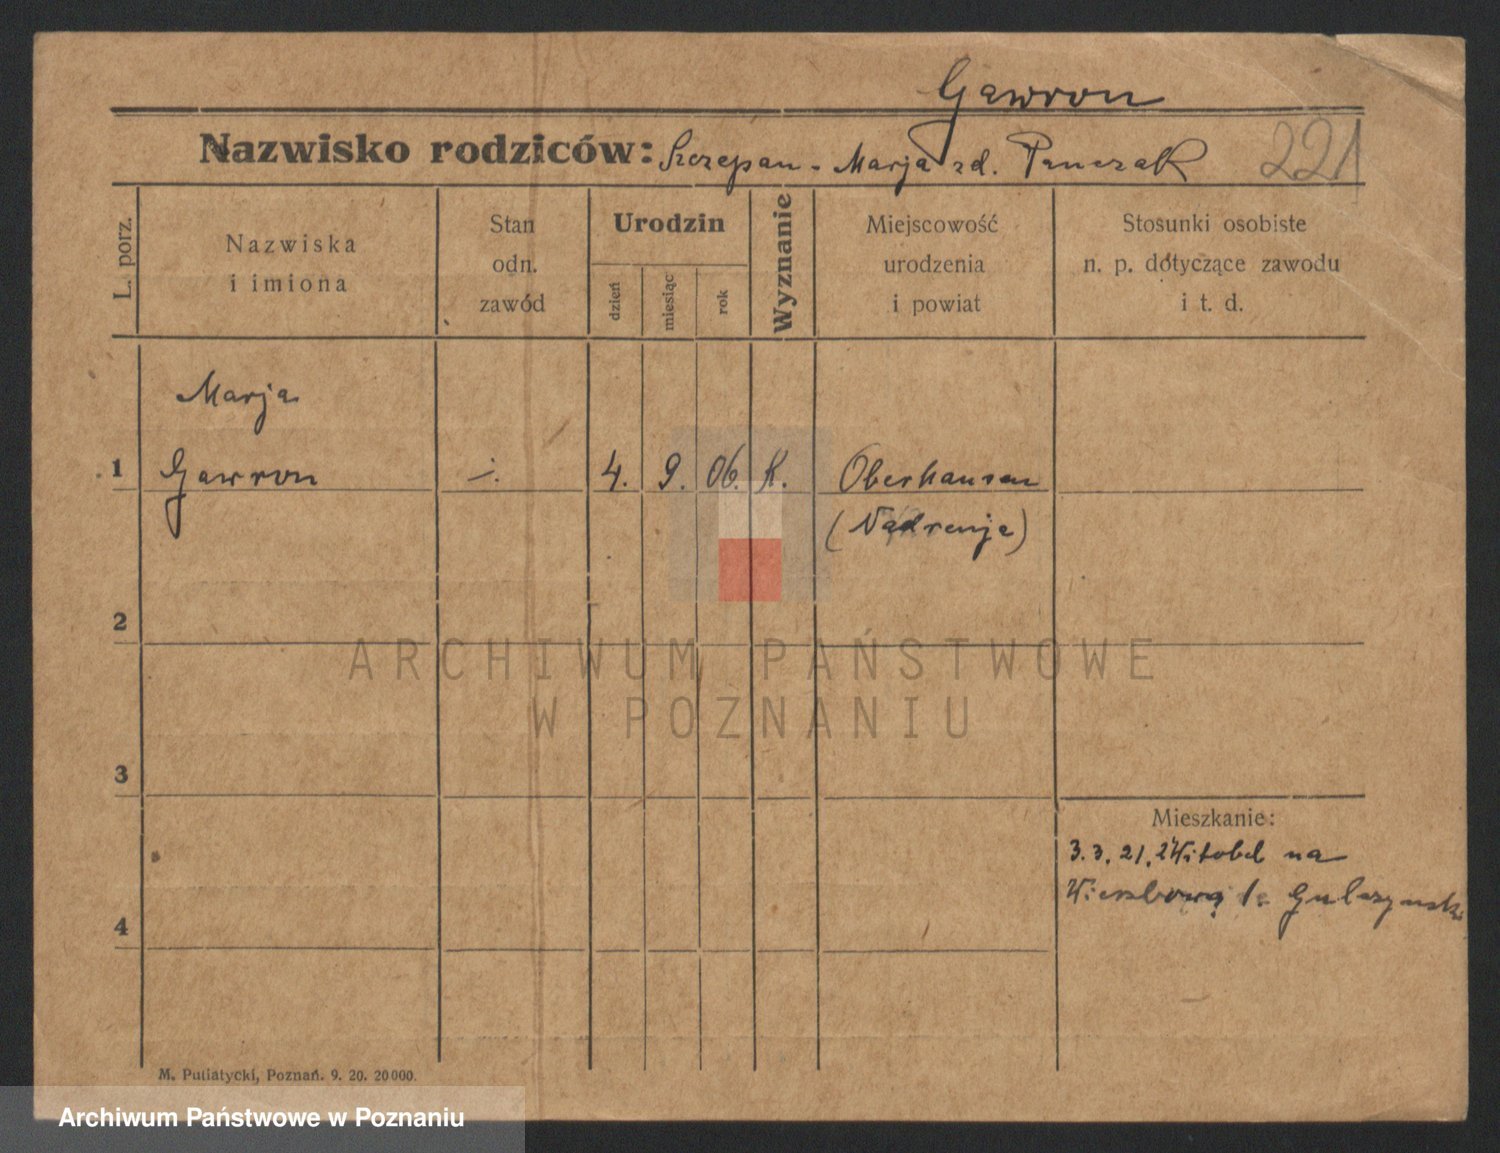 Gawron
Nazwisko rodziców: Szczepan - Marja zd. Panczak
221
L. porz.
Nazwiska
i imiona
Stan
odn.
zawód
Urodzin
dzień
miesiąc
rok
Wyznanie
Miejscowość
urodzenia
i powiat
Stosunki osobiste
n. p. dotyczące zawodu
i t. d.
Marja
1 Gawron 4. 9. 06. K. Oberhausen
(Nadrenja)
2
ARCHIWUM PAŃSTWOWE
W POZNANIU
3
Mieszkanie:
3. 3. 21. Witobel na
4
M. Putiatycki, Poznań. 9. 20. 20000.
Archiwum Państwowe w Poznaniu